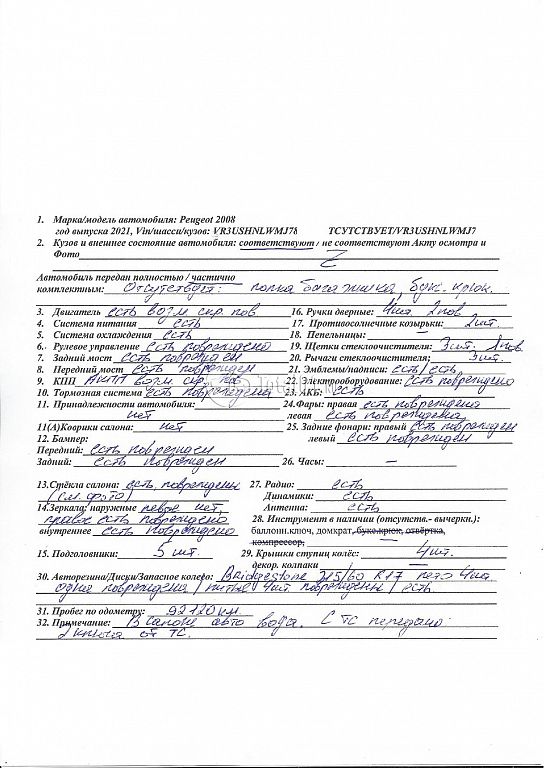 1. Марка/модель автомобиля: Peugeot 2008
год выпуска 2021, Vin/шасси/кузов: VR3USHNLWMJ78 ТСУТСТВУЕТ/VR3USHNLWMJ7
2. Кузов и внешнее состояние автомобиля: соответствуют / не соответствуют Акту осмотра и
Фото Z
Автомобиль передан полностью / частично
комплектным: Отсутствует: полка багажника, букс. крюк.
3. Двигатель есть возм скр пов 16. Ручки дверные: 4шт 2пов
4. Система питания есть 17. Противосолнечные козырьки: 2шт.
5. Система охлаждения есть 18. Пепельницы: —
6. Рулевое управление есть повреждено 19. Щетки стеклоочистителя: 3шт. 1пов
7. Задний мост есть поврежден 20. Рычаги стеклоочистителя; 3шт.
8. Передний мост есть поврежден 21. Эмблемы/надписи: есть/есть
9. КПП АКПП возм. скр. пов 22. Электрооборудование: есть повреждено
10. Тормозная система есть повреждена 23. АКБ: есть
11. Принадлежности автомобиля: 24. Фары: правая есть повреждена
нет левая есть повреждена
11(А)Коврики салона: нет 25. Задние фонари: правый есть поврежден
12. Бампер: левый есть поврежден
Передний: есть поврежден
Задний: есть поврежден 26. Часы: —
13.Стёкла салона: есть повреждены 27. Радио: есть
(см. фото) Динамики: есть
14.Зеркала: наружные левое нет, Антенна: есть
правое есть повреждено 28. Инструмент в наличии (отсутств.- вычеркн.):
внутреннее есть повреждено баллонн.ключ, домкрат, букс.крюк, отвёртка,
компрессор, —
15. Подголовники: 5 шт. 29. Крышки ступиц колёс: 4шт.
декор. колпаки —
30. Авторезина/Диски/Запасное колесо: Bridgestone 215/60 R17 лето 4шт
одна повреждена / литые 4шт повреждены / есть
31. Пробег по одометру: 92120км.
32. Примечание: В салоне авто вода. С ТС передано:
2 ключа от ТС.